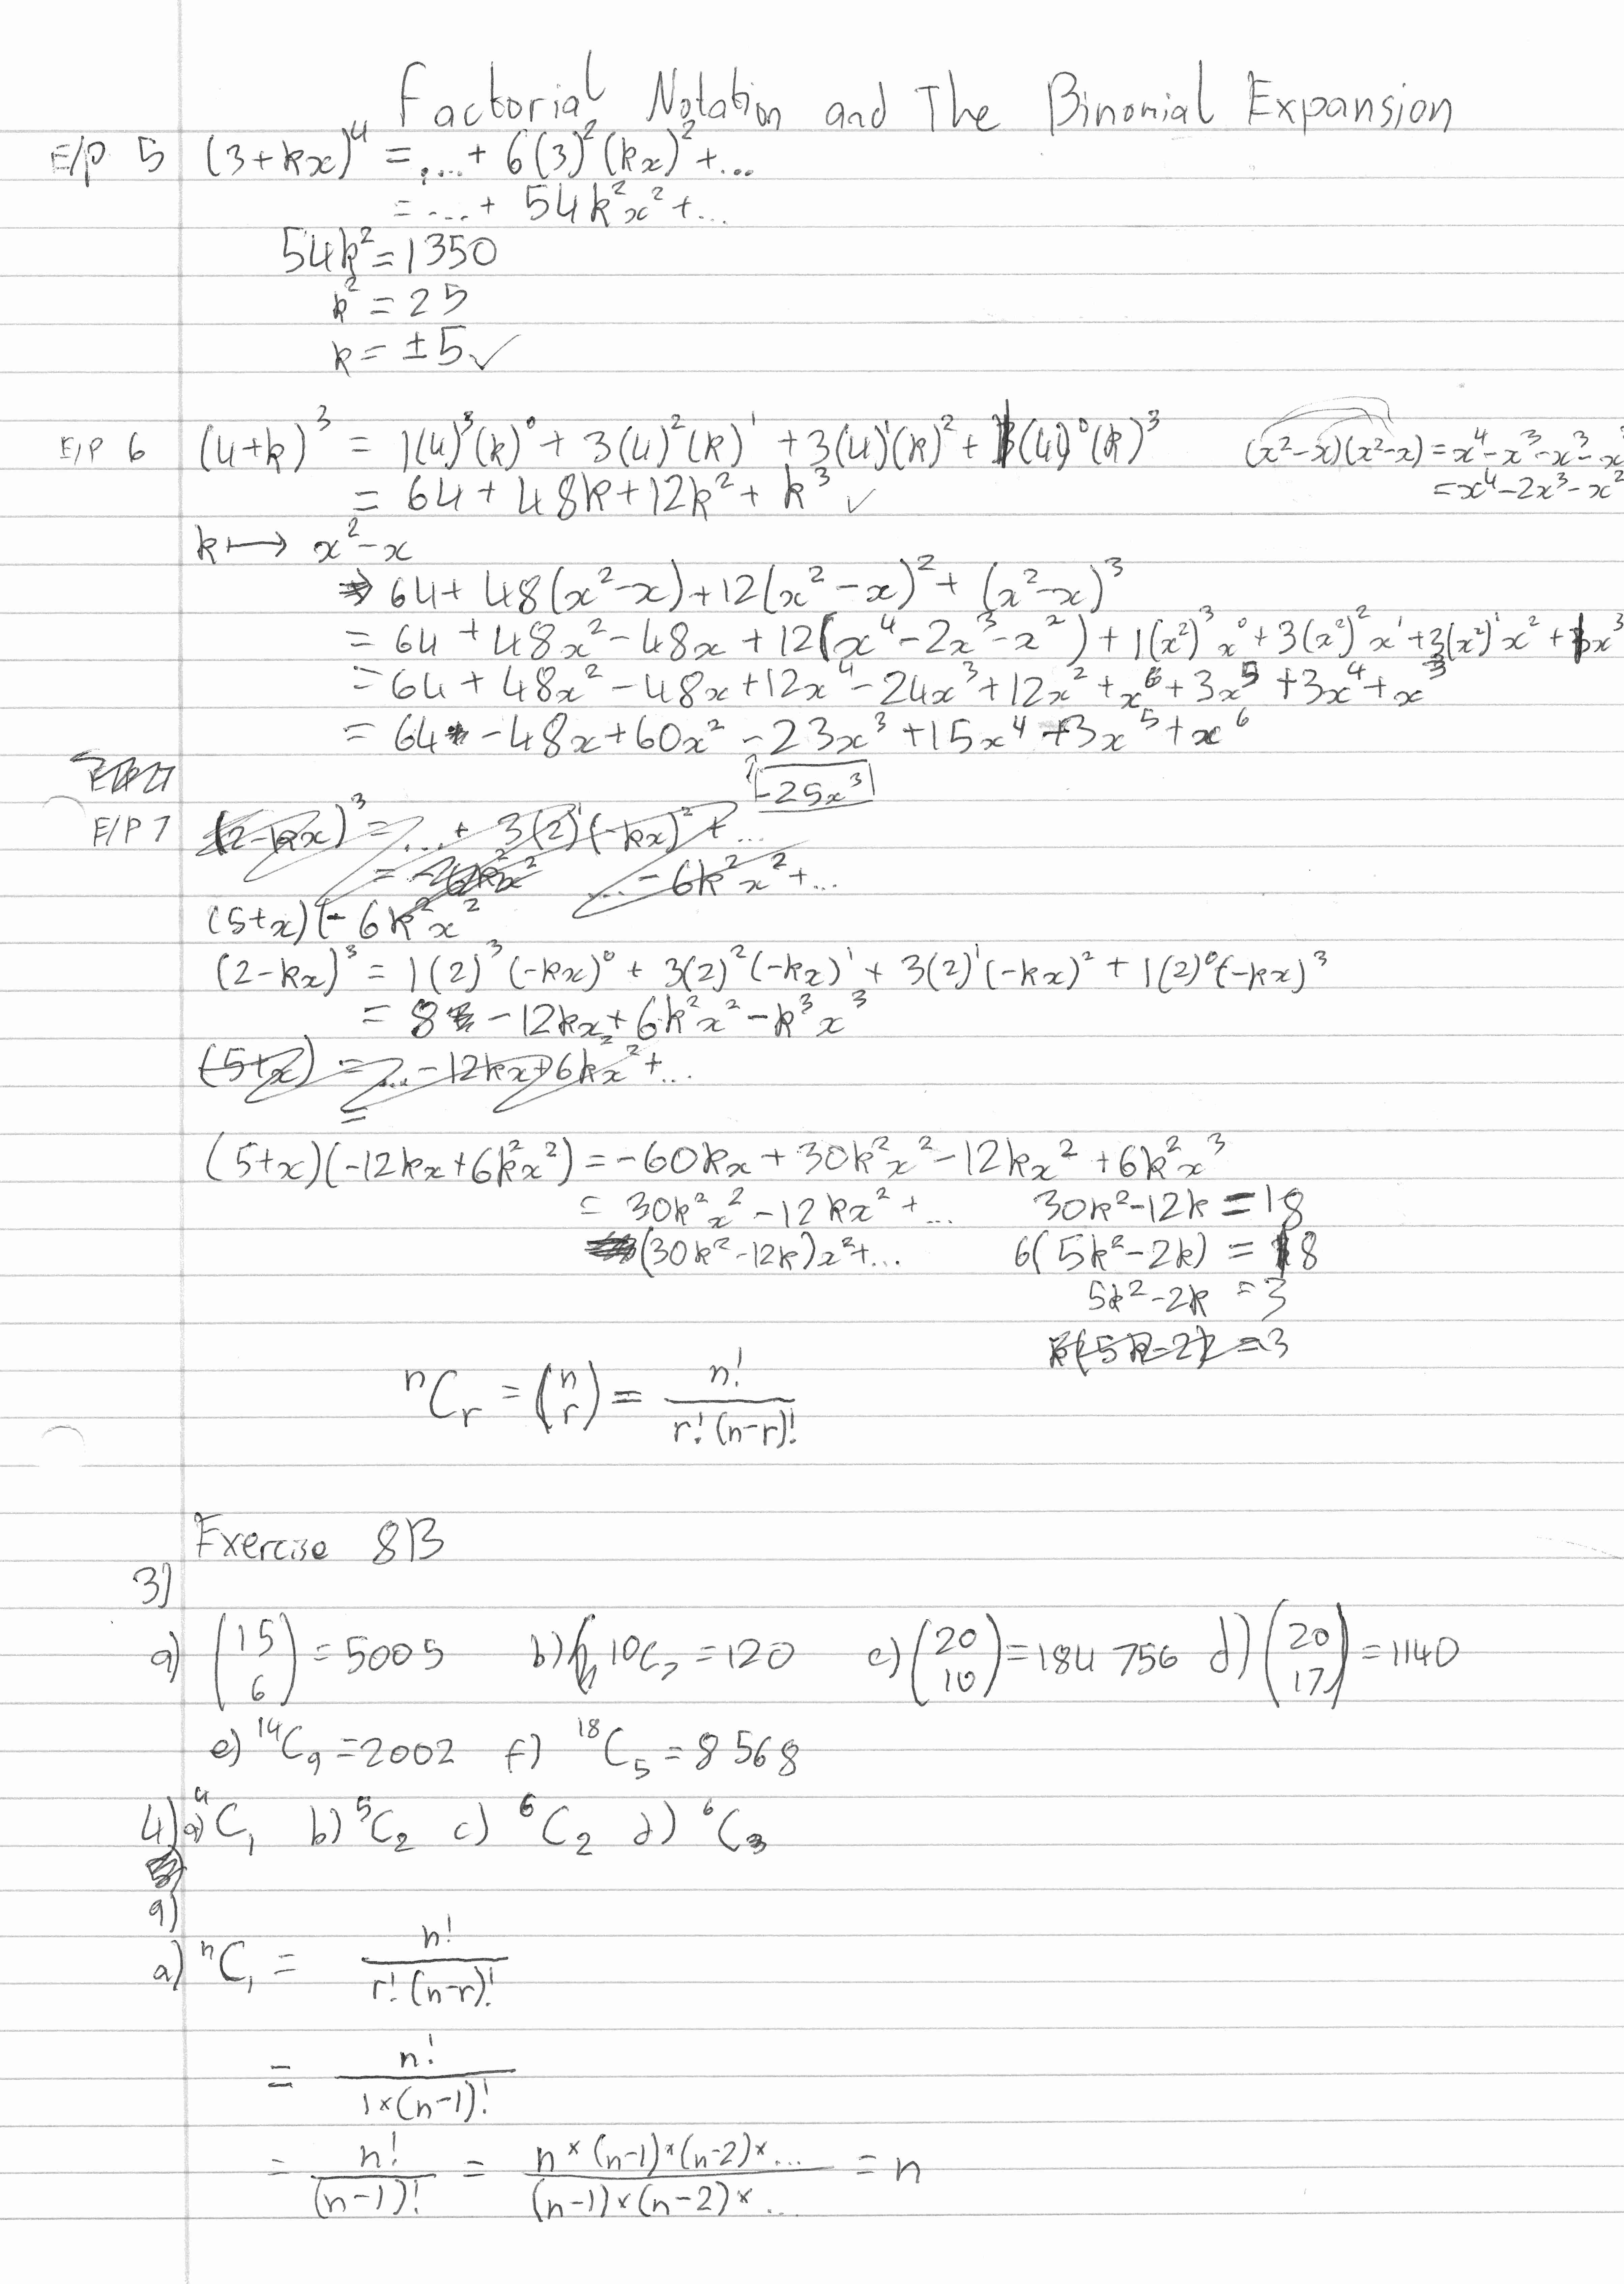 Factorial Notation and The Binomial Expansion
E/P 5 (3+kx)⁴ = ... + 6(3)²(kx)² + ...
= ... + 54k²x² + ...
54k² = 1350
k² = 25
k = ±5 ✓
E/P 6 (4+k)³ = 1(4)³(k)⁰ + 3(4)²(k)¹ + 3(4)¹(k)² + 1(4)⁰(k)³ (x²-x)(x²-x) = x⁴-x³-x³-x²
= 64 + 48k + 12k² + k³ ✓ = x⁴-2x³-x²
k ↦ x²-x
⇒ 64 + 48(x²-x) + 12(x²-x)² + (x²-x)³
= 64 + 48x² - 48x + 12(x⁴-2x³-x²) + 1(x²)³x⁰ + 3(x²)²x¹ + 3(x²)¹x² + 1x³
= 64 + 48x² - 48x + 12x⁴ - 24x³ + 12x² + x⁶ + 3x⁵ + 3x⁴ + x³
= 64 - 48x + 60x² - 23x³ + 15x⁴ + 3x⁵ + x⁶
-25x³
E/P 7 (2-kx)³ = ... + 3(2)¹(-kx)² + ...
= ... - 6k²x² + ...
(5+x)(-6k²x²
(2-kx)³ = 1(2)³(-kx)⁰ + 3(2)²(-kx)¹ + 3(2)¹(-kx)² + 1(2)⁰(-kx)³
= 8 - 12kx + 6k²x² - k³x³
(5+x) = ... - 12kx + 6k²x² + ...
=
(5+x)(-12kx+6k²x²) = -60kx + 30k²x² - 12kx² + 6k²x³
= 30k²x² - 12kx² + ... 30k²-12k = 18
(30k²-12k)x² + ... 6(5k²-2k) = 18
5k²-2k = 3
k(5k-2) = 3
ⁿCᵣ = (n r) = n! / r!(n-r)!
Exercise 8B
3)
a) (15 6) = 5005 b) 10C₇ = 120 c) (20 10) = 184 756 d) (20 17) = 1140
e) ¹⁴C₉ = 2002 f) ¹⁸C₅ = 8 568
4) a) ⁴C₁ b) ⁵C₂ c) ⁶C₂ d) ⁶C₃
9)
a) ⁿC₁ = n! / r!(n-r)!
= n! / 1×(n-1)!
= n! / (n-1)! = n×(n-1)×(n-2)×... / (n-1)×(n-2)×... = n